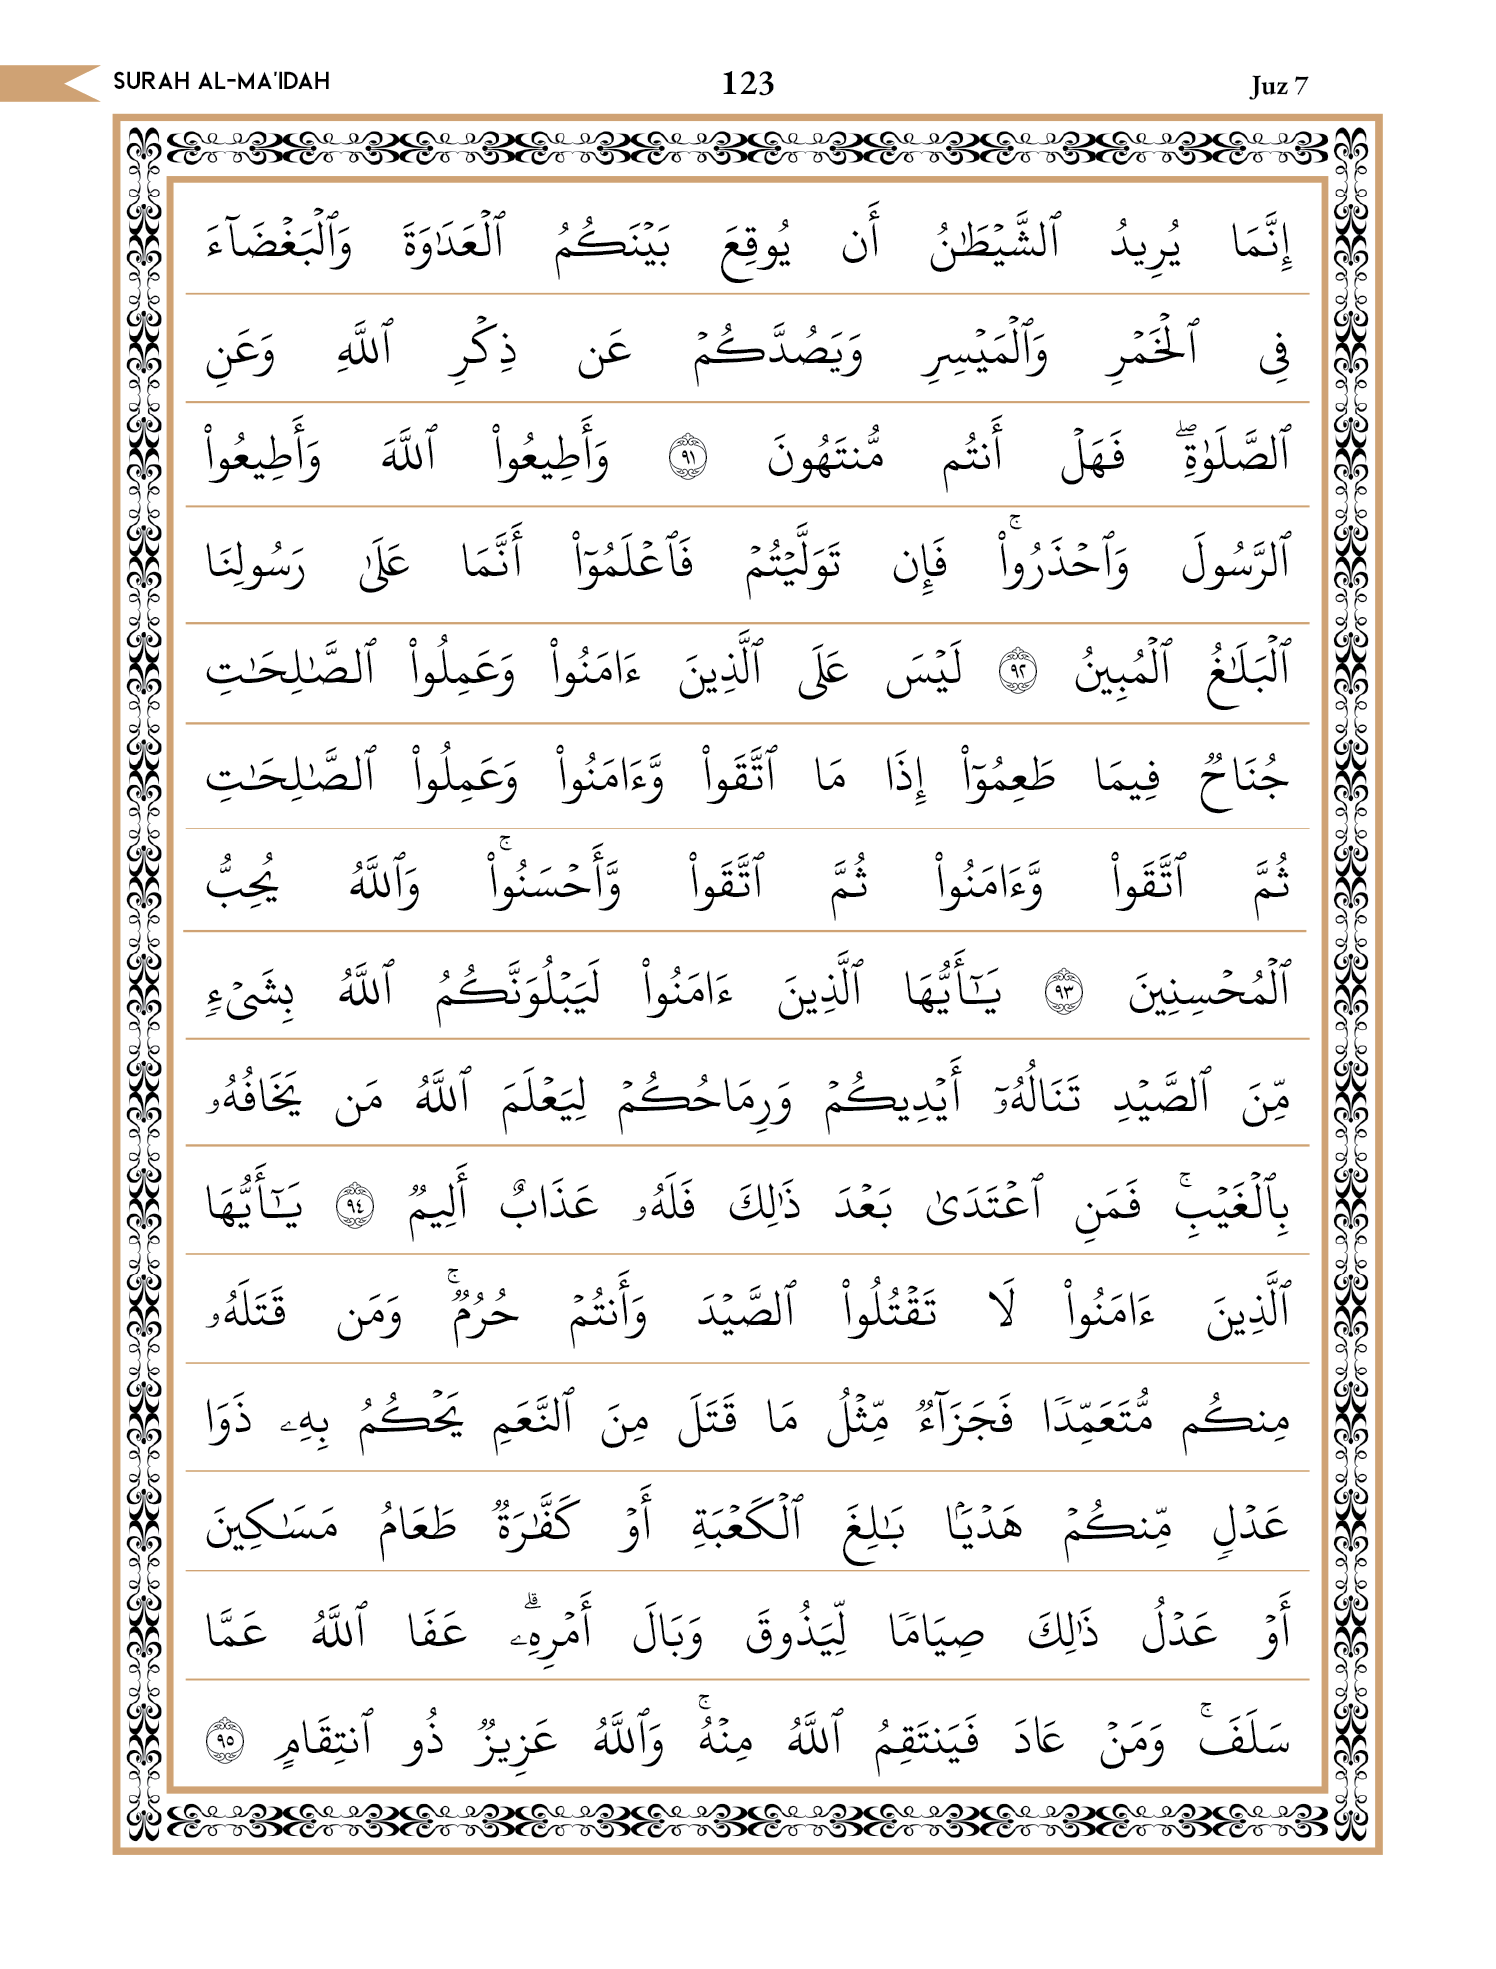 SURAH AL-MA'IDAH 123 Juz 7
إِنَّمَا يُرِيدُ ٱلشَّيْطَٰنُ أَن يُوقِعَ بَيْنَكُمُ ٱلْعَدَٰوَةَ وَٱلْبَغْضَآءَ
فِى ٱلْخَمْرِ وَٱلْمَيْسِرِ وَيَصُدَّكُمْ عَن ذِكْرِ ٱللَّهِ وَعَنِ
ٱلصَّلَوٰةِ ۖ فَهَلْ أَنتُم مُّنتَهُونَ ٩١ وَأَطِيعُوا۟ ٱللَّهَ وَأَطِيعُوا۟
ٱلرَّسُولَ وَٱحْذَرُوا۟ ۚ فَإِن تَوَلَّيْتُمْ فَٱعْلَمُوٓا۟ أَنَّمَا عَلَىٰ رَسُولِنَا
ٱلْبَلَٰغُ ٱلْمُبِينُ ٩٢ لَيْسَ عَلَى ٱلَّذِينَ ءَامَنُوا۟ وَعَمِلُوا۟ ٱلصَّٰلِحَٰتِ
جُنَاحٌ فِيمَا طَعِمُوٓا۟ إِذَا مَا ٱتَّقَوا۟ وَّءَامَنُوا۟ وَعَمِلُوا۟ ٱلصَّٰلِحَٰتِ
ثُمَّ ٱتَّقَوا۟ وَّءَامَنُوا۟ ثُمَّ ٱتَّقَوا۟ وَّأَحْسَنُوا۟ ۚ وَٱللَّهُ يُحِبُّ
ٱلْمُحْسِنِينَ ٩٣ يَـٰٓأَيُّهَا ٱلَّذِينَ ءَامَنُوا۟ لَيَبْلُوَنَّكُمُ ٱللَّهُ بِشَىْءٍ
مِّنَ ٱلصَّيْدِ تَنَالُهُۥٓ أَيْدِيكُمْ وَرِمَاحُكُمْ لِيَعْلَمَ ٱللَّهُ مَن يَخَافُهُۥ
بِٱلْغَيْبِ ۚ فَمَنِ ٱعْتَدَىٰ بَعْدَ ذَٰلِكَ فَلَهُۥ عَذَابٌ أَلِيمٌ ٩٤ يَـٰٓأَيُّهَا
ٱلَّذِينَ ءَامَنُوا۟ لَا تَقْتُلُوا۟ ٱلصَّيْدَ وَأَنتُمْ حُرُمٌ ۚ وَمَن قَتَلَهُۥ
مِنكُم مُّتَعَمِّدًا فَجَزَآءٌ مِّثْلُ مَا قَتَلَ مِنَ ٱلنَّعَمِ يَحْكُمُ بِهِۦ ذَوَا
عَدْلٍ مِّنكُمْ هَدْيًۢا بَـٰلِغَ ٱلْكَعْبَةِ أَوْ كَفَّـٰرَةٌ طَعَامُ مَسَـٰكِينَ
أَوْ عَدْلُ ذَٰلِكَ صِيَامًا لِّيَذُوقَ وَبَالَ أَمْرِهِۦ ۗ عَفَا ٱللَّهُ عَمَّا
سَلَفَ ۚ وَمَنْ عَادَ فَيَنتَقِمُ ٱللَّهُ مِنْهُ ۚ وَٱللَّهُ عَزِيزٌ ذُو ٱنتِقَامٍ ٩٥